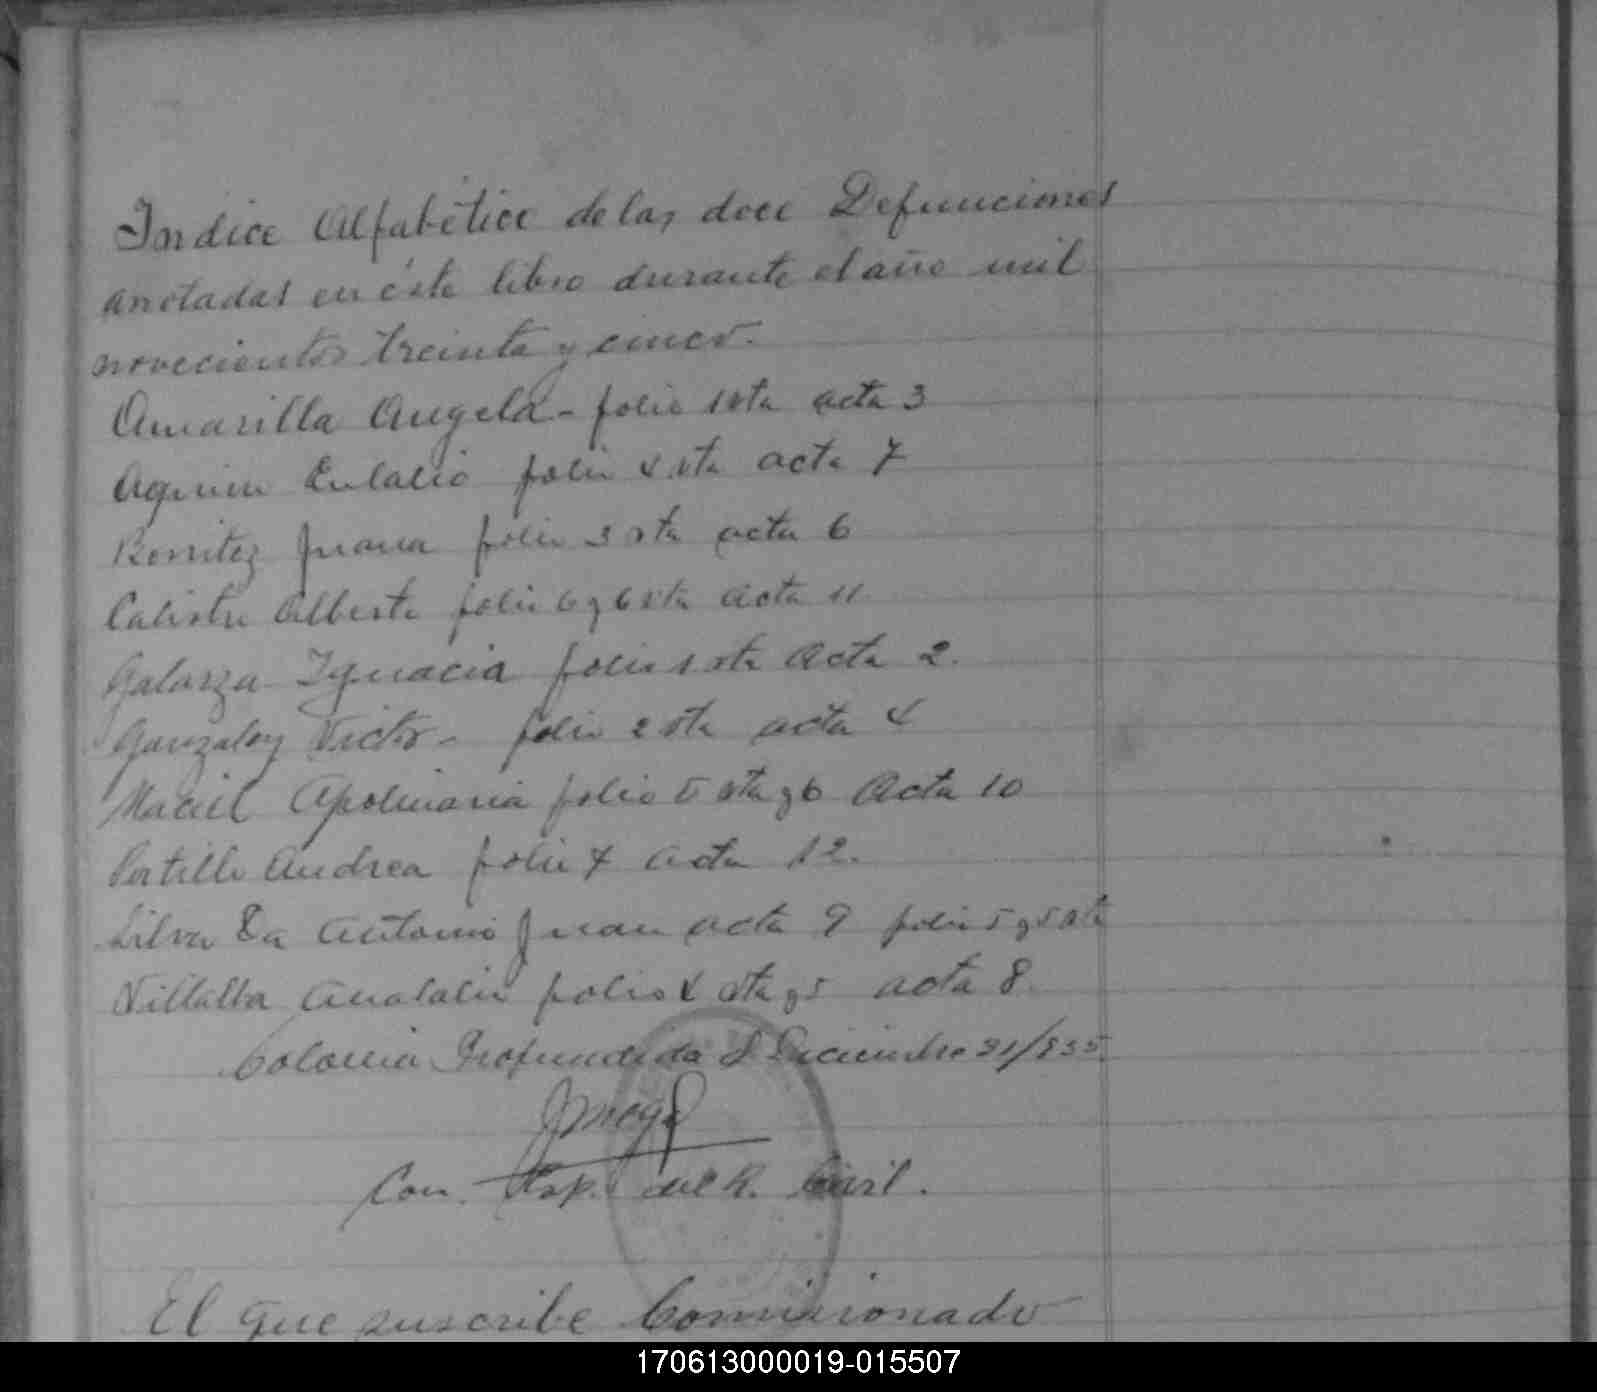 Indice Alfabético de las doce Defunciones
anotadas en éste libro durante el año mil
novecientos treinta y cinco.
Amarilla Angela - folio 1 vta acta 3
Aquino Eulalio folio 4 vta acta 7
Benitez Juana folio 3 vta acta 6
Calistro Alberto folio 6 y 6 vta acta 11
Galarza Ignacia folio 1 vta acta 2.
Gonzalez Victor - folio 2 vta acta 4
Maciel Apolinaria folio 5 vta y 6 acta 10
Portillo Andrea folio 7 acta 12.
Silva Da Antonio Juan acta 9 folio 5 y 5 vta
Villalba Anatalio folio 4 vta y 5 acta 8.
Colonia Profundidad Diciembre 31/935.
Com. Esp. del R. Civil.
El que suscribe Comisionado
170613000019-015507